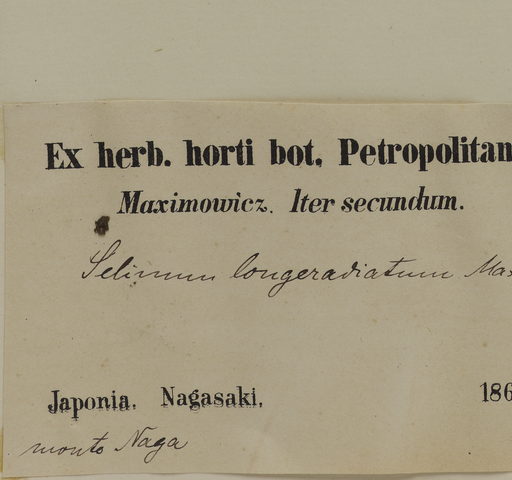 Ex herb. horti bot. Petropolitan
Maximowicz. Iter secundum.
Selinum longeradiatum Max
Japonia. Nagasaki. 186
monto Naga